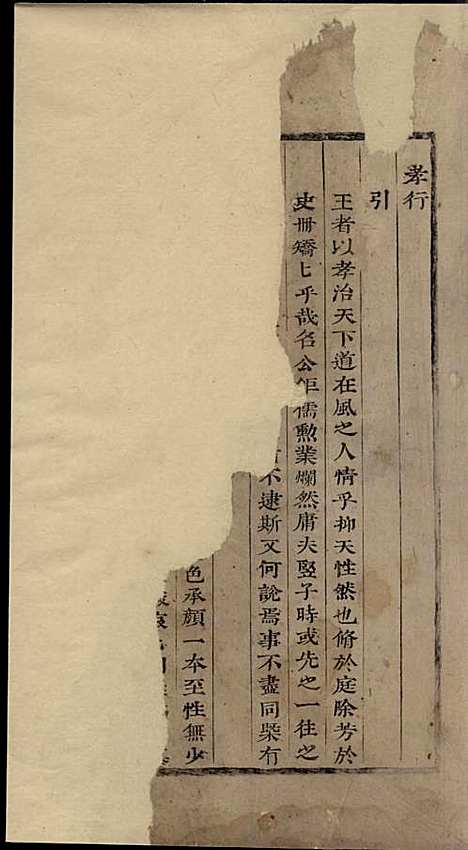 孝行
引
王者以孝治天下道在風之人情乎抑天性然也脩於庭除芳於
史冊矯匕乎哉名公鉅儒勲業爛然庸夫豎子時或先之一往之
不逮斯又何說焉事不盡同槩有
色承顏一本至性無少